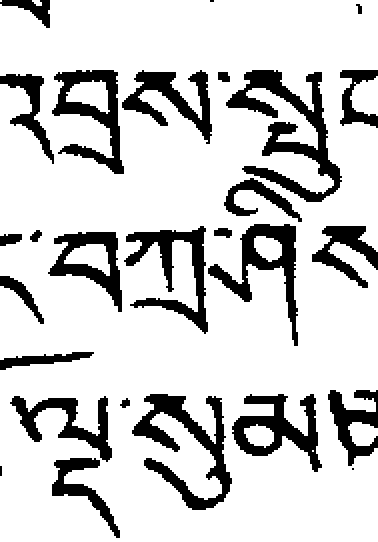 འབྲས་སྤུང
བཀྲ་ཤིས
ལྔ་སུམ